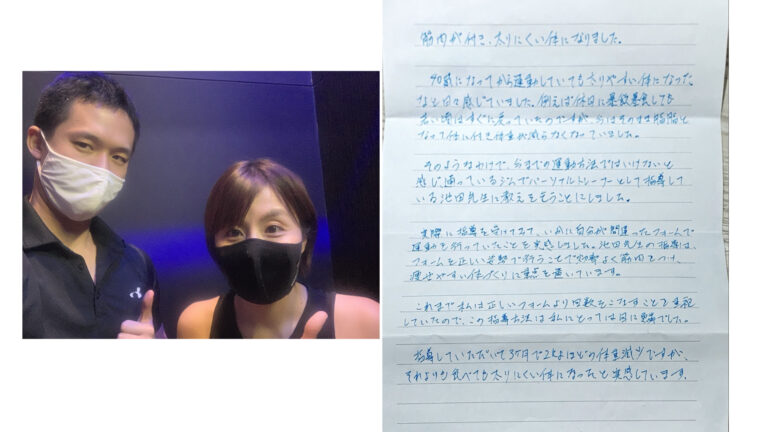 筋肉が付き、太りにくい体になりました。
40歳になってから運動していても太りやすい体になった
なと日々感じていました。例えば休日に暴飲暴食しても
若い時はすぐに戻っていたのですが、今はそのまま脂肪と
なって体に付き体重が減らなくなっていました。
そのようなわけで、今までの運動方法ではいけないと
感じ通っているジムでパーソナルトレーナーとして指導して
いる池田先生に教えをこうことにしました。
実際に指導を受けてみて、いかに自分が間違ったフォームで
運動を行っていたことを実感しました。池田先生の指導は、
フォームを正しい姿勢で行うことで効率よく筋肉をつけ、
痩せやすい体づくりに重点を置いています。
これまで私は正しいフォームより回数をこなすことを重視
していたので、この指導方法は私にとっては目に鱗でした。
指導していただいて3ヶ月で2kgほどの体重減少ですが、
それよりも食べても太りにくい体になったと実感しています。